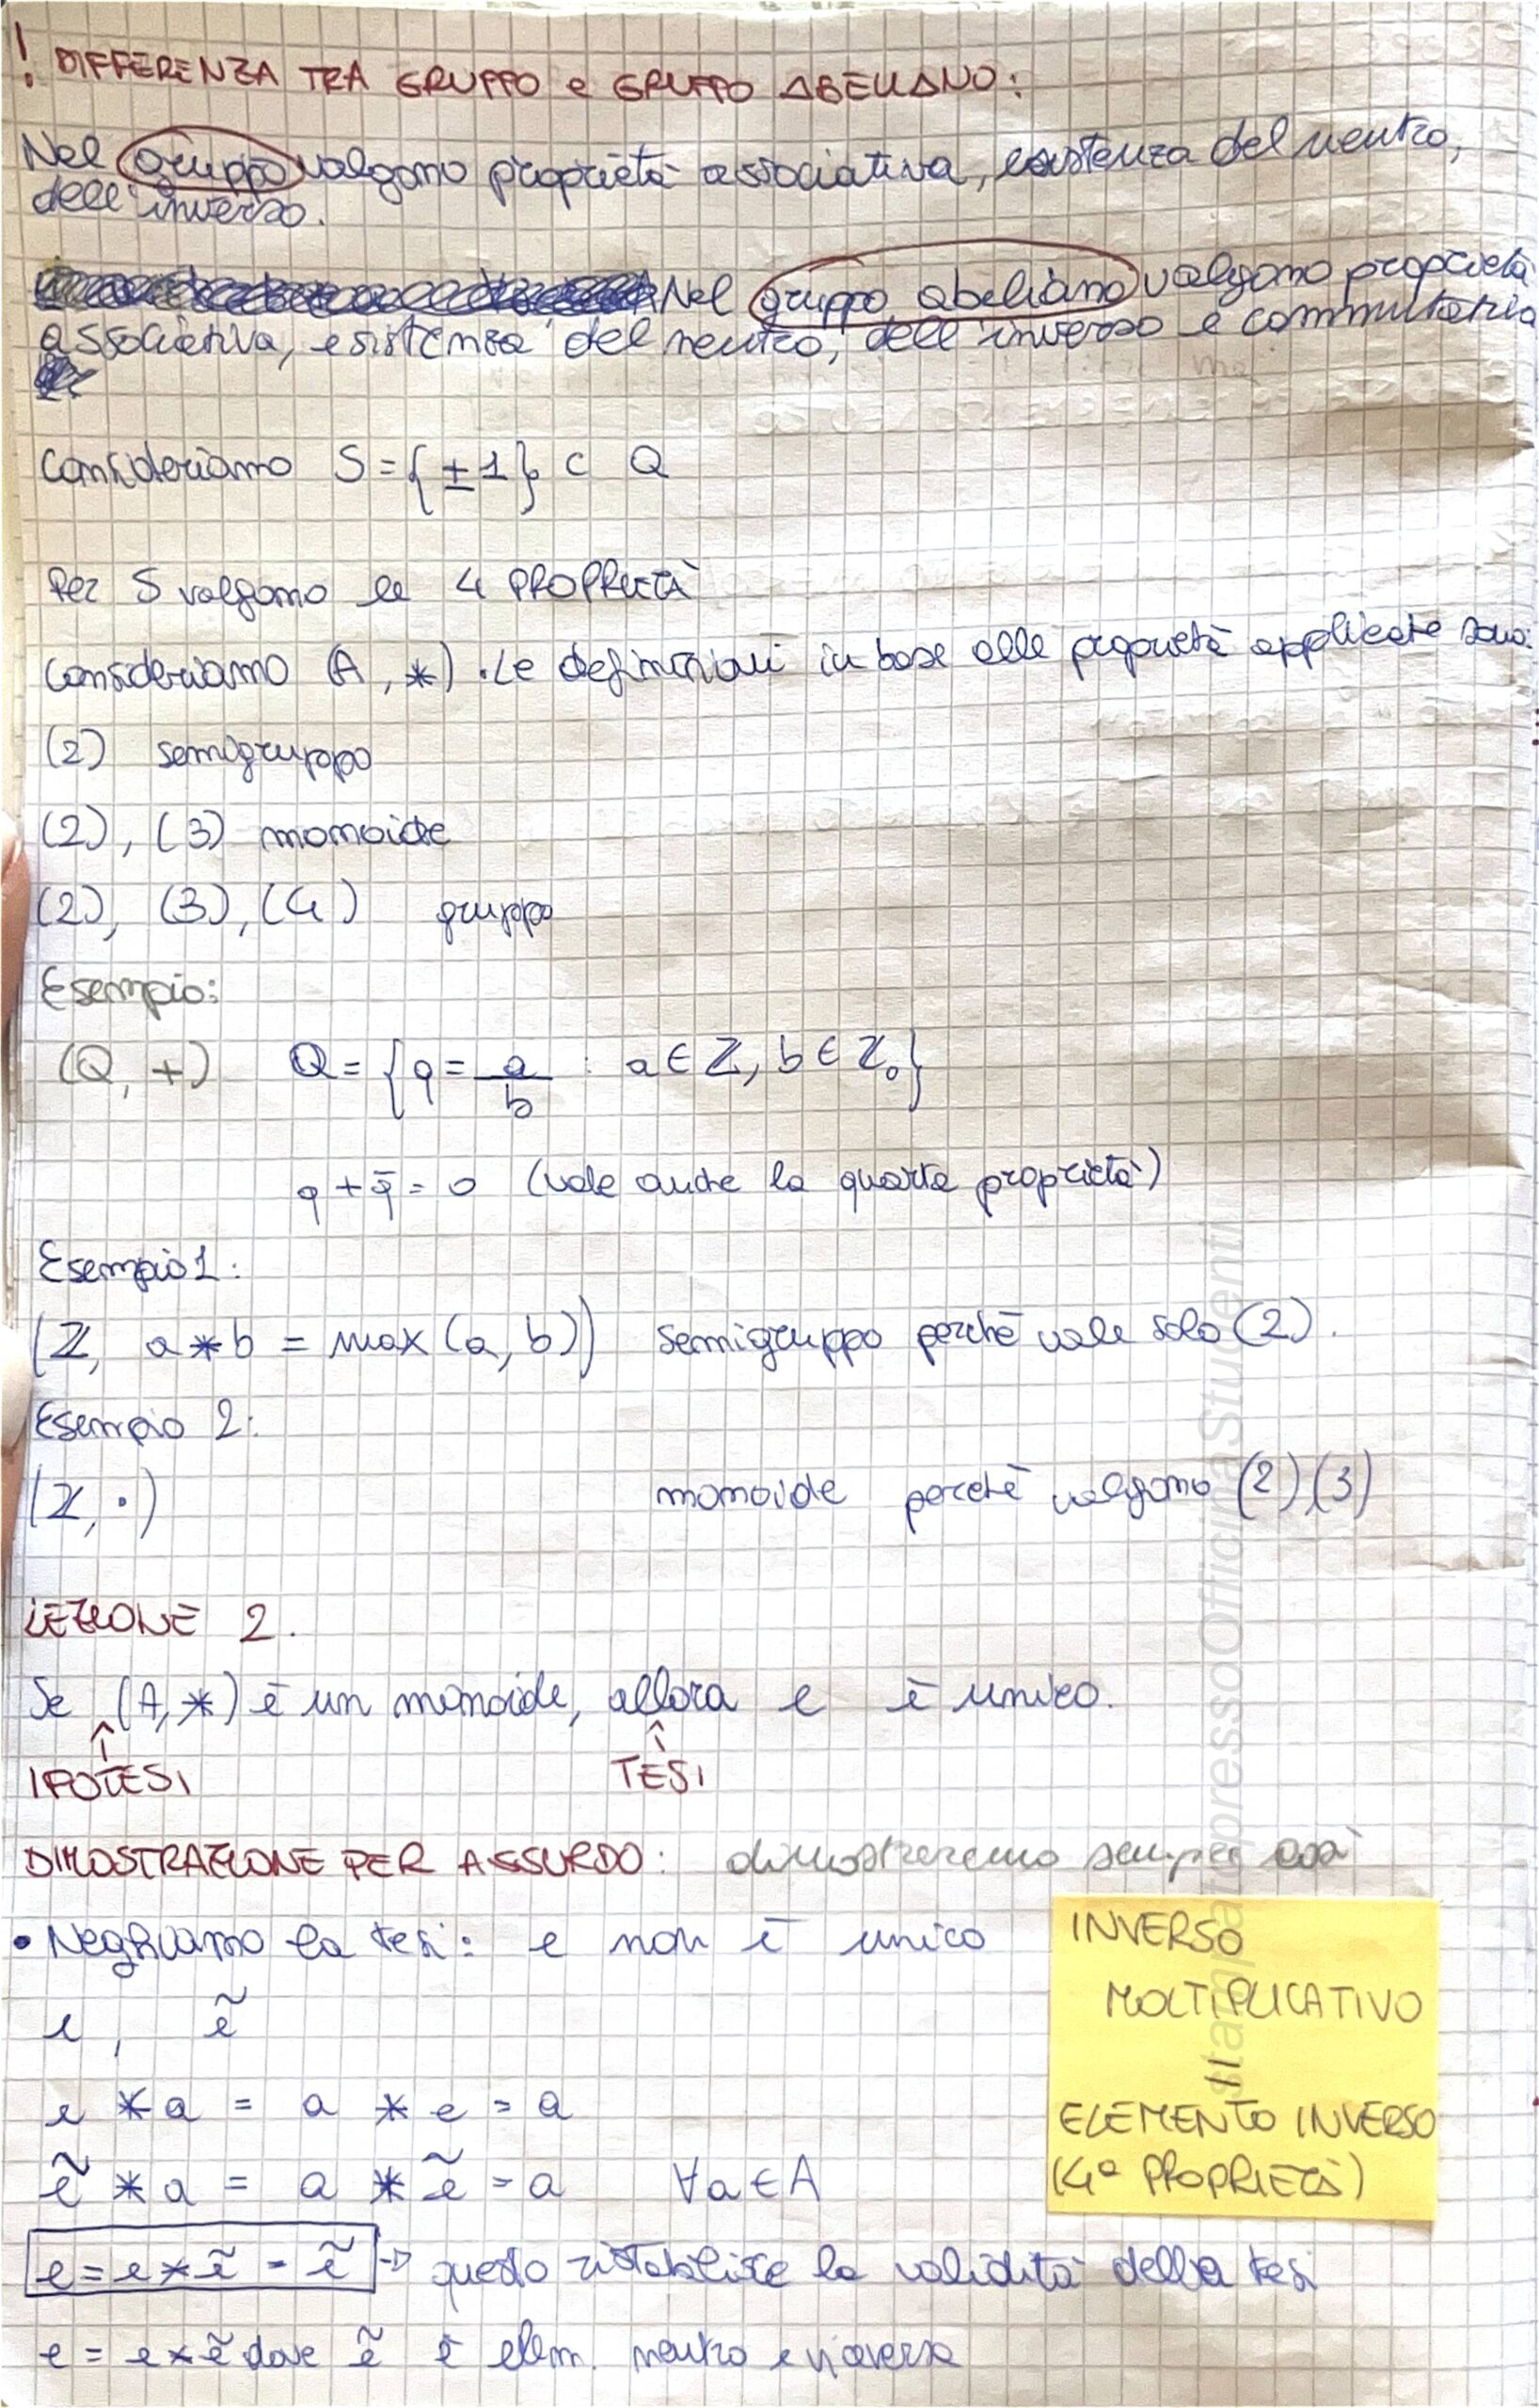 ! DIFFERENZA TRA GRUPPO e GRUPPO ABELIANO:
Nel gruppo valgono proprietà associativa, esistenza del neutro,
dell'inverso.
Nel gruppo abeliano valgono proprietà
associativa, esistenza del neutro, dell'inverso e commutativa
Consideriamo S = {±1} ⊂ Q
Per S valgono le 4 PROPRIETÀ
Consideriamo (A, *). Le definizioni in base alle proprietà applicate sono:
(2) semigruppo
(2), (3) monoide
(2), (3), (4) gruppo
Esempio:
(Q, +) Q = {q = a/b : a ∈ Z, b ∈ Z₀}
q + q̄ = 0 (vale anche la quarta proprietà)
Esempio 1:
(Z, a * b = max (a, b)) semigruppo perchè vale solo (2).
Esempio 2:
(Z, ·) monoide perchè valgono (2) (3)
LEZIONE 2.
Se (A, *) è un monoide, allora e è unico.
↑ ↑
IPOTESI TESI
DIMOSTRAZIONE PER ASSURDO: dimostreremo sempre così
• Neghiamo la tesi: e non è unico
e, ẽ
e * a = a * e = a
ẽ * a = a * ẽ = a ∀a ∈ A
e = e * ẽ = ẽ → questo ristabilisce la validità della tesi
e = e * ẽ dove ẽ è elem. neutro e
INVERSO
MOLTIPLICATIVO
=
ELEMENTO INVERSO
(4ª PROPRIETÀ)
stampatopressoOfficinaStudenti